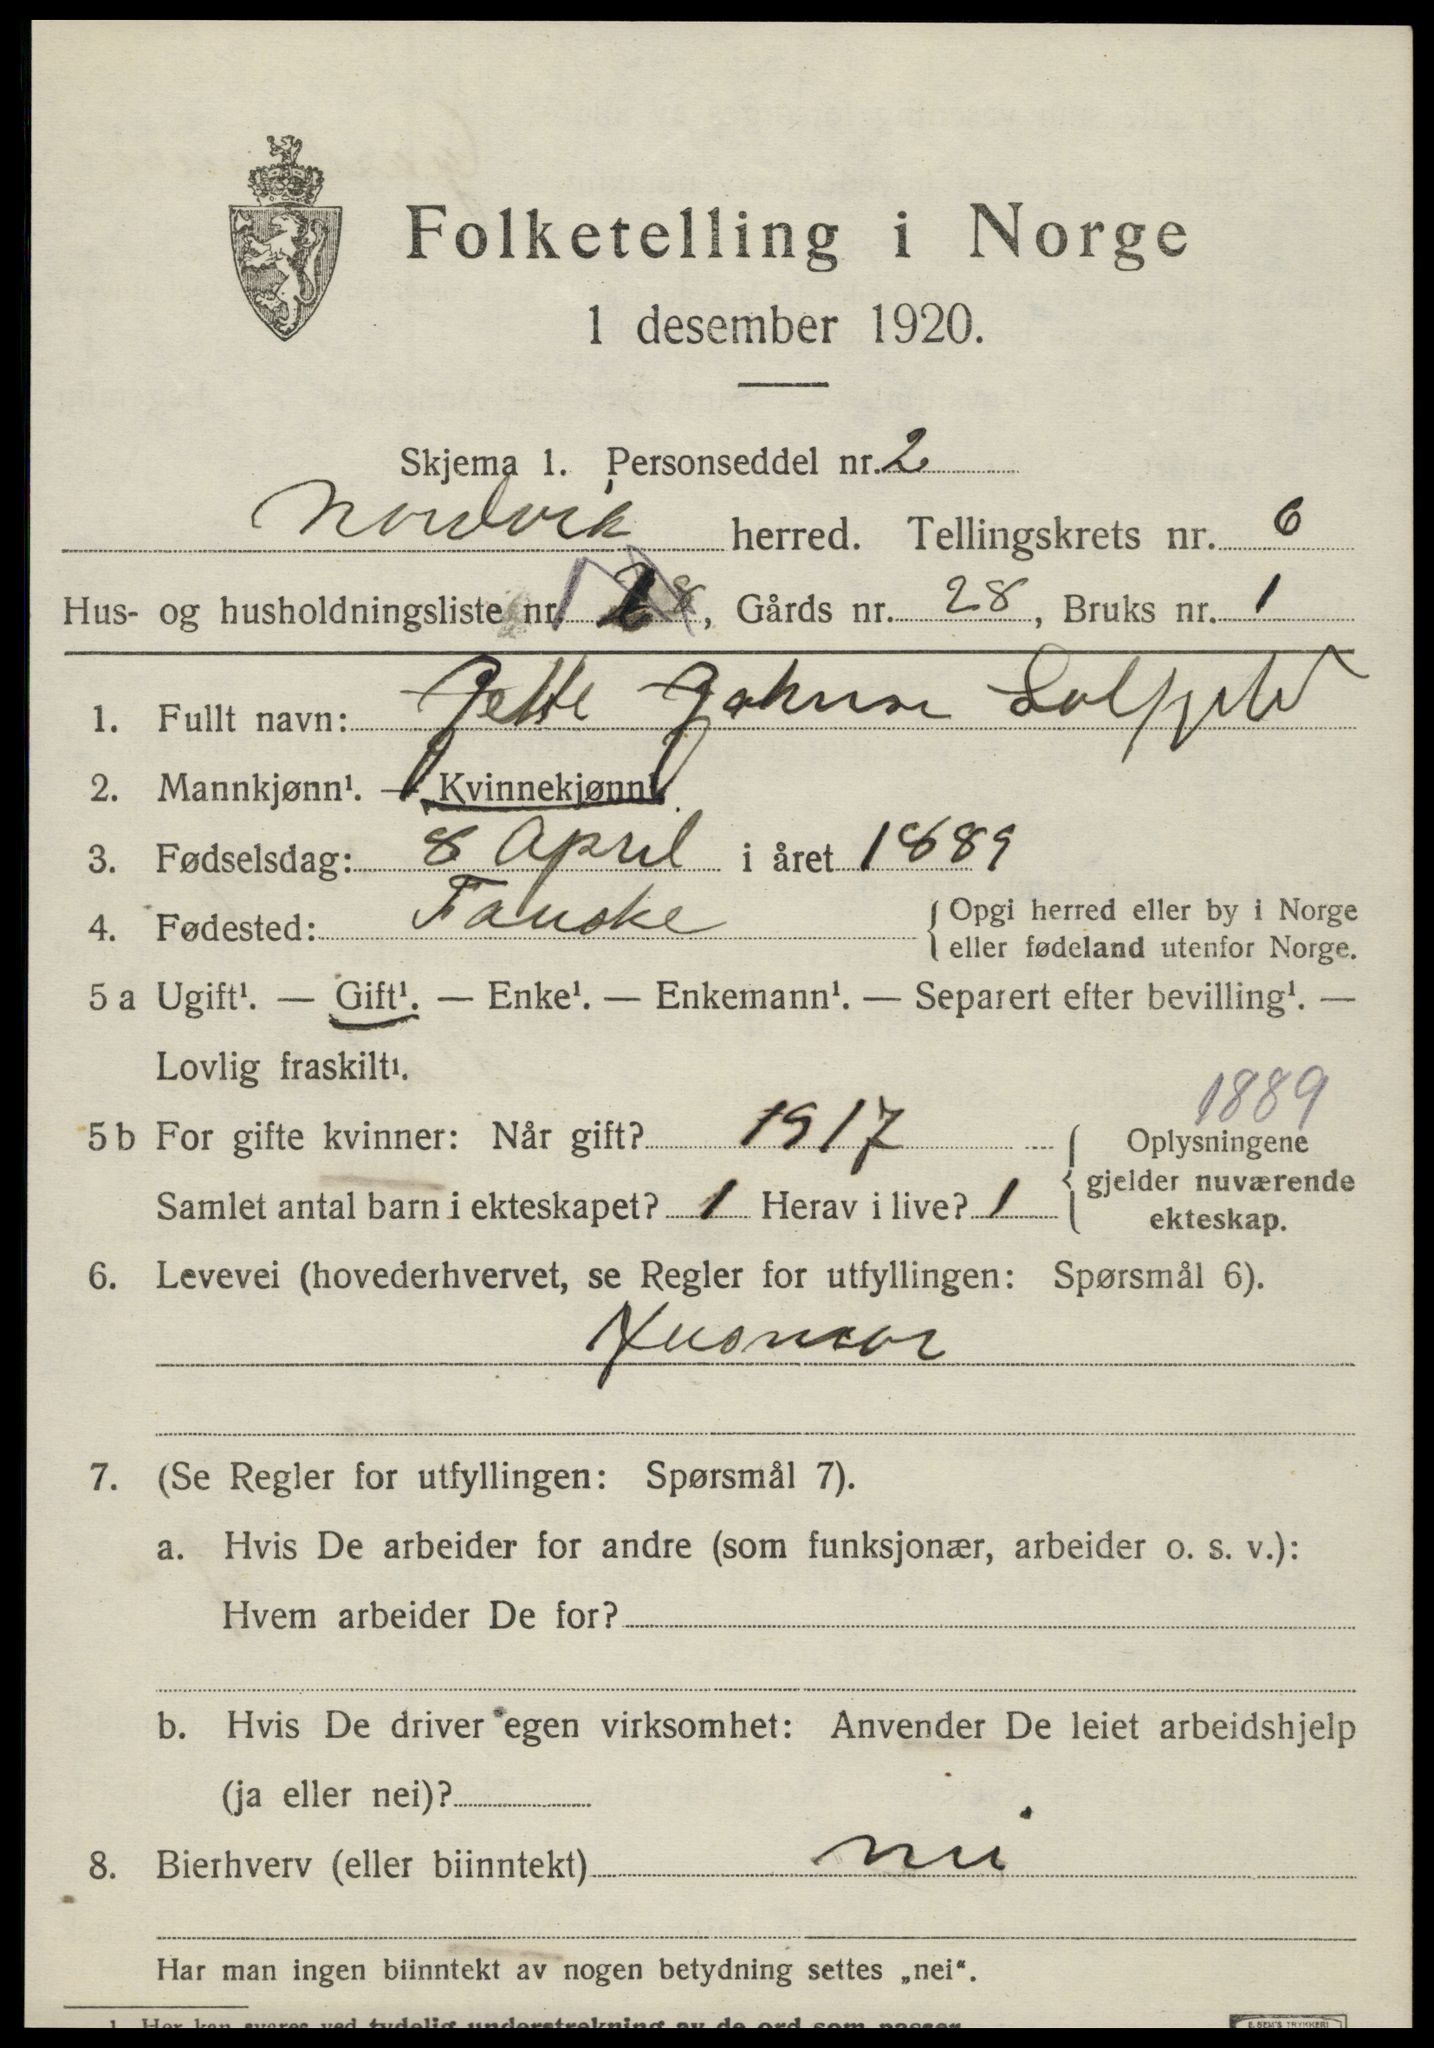 Folketelling i Norge
1 desember 1920.
Skjema 1. Personseddel nr. 2
Nordvik herred. Tellingskrets nr. 6
Hus- og husholdningsliste nr. 1, Gårds nr. 28, Bruks nr. 1
1. Fullt navn: Jette
2. Mannkjønn¹. — Kvinnekjønn¹.
3. Fødselsdag: 8 April i året 1889
4. Fødested: Fauske {Opgi herred eller by i Norge
eller fødeland utenfor Norge.
5 a Ugift¹. — Gift¹. — Enke¹. — Enkemann¹. — Separert efter bevilling¹. —
Lovlig fraskilt¹.
1889
5 b For gifte kvinner: Når gift? 1917
Samlet antal barn i ekteskapet? 1 Herav i live? 1
{Oplysningene
gjelder nuværende
ekteskap.
6. Levevei (hovederhvervet, se Regler for utfyllingen: Spørsmål 6).
Husmor
7. (Se Regler for utfyllingen: Spørsmål 7).
a. Hvis De arbeider for andre (som funksjonær, arbeider o. s. v.):
Hvem arbeider De for?
b. Hvis De driver egen virksomhet: Anvender De leiet arbeidshjelp
(ja eller nei)?
8. Bierhverv (eller biinntekt) nei
Har man ingen biinntekt av nogen betydning settes „nei“.
1 Her kan svares ved tydelig understrekning av de ord som passer.